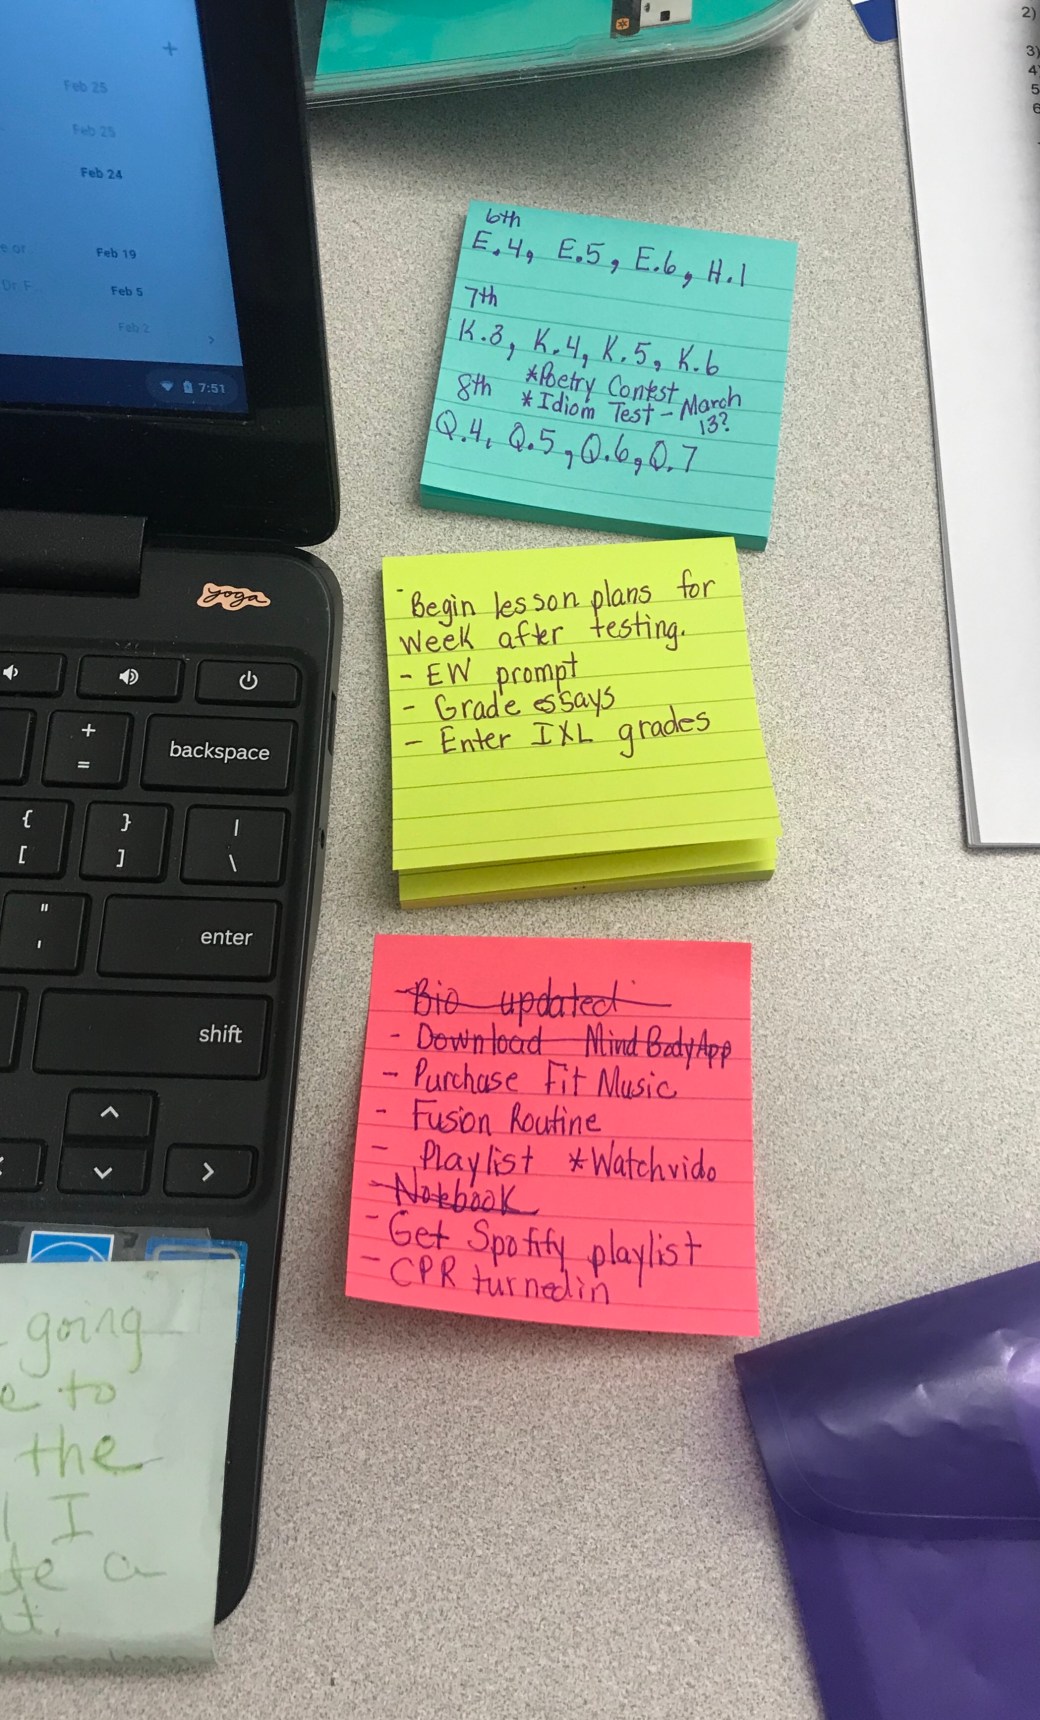 +
Feb 25
Feb 25
Feb 24
Feb 19
Dr. F
Feb 5
Feb 2
7:51
yoga
+
=
backspace
{
[
}
]
|
\
"
'
enter
shift
2)
3)
4)
5
6
6th
E.4, E.5, E.6, H.1
7th
K.3, K.4, K.5, K.6
*Poetry Contest
8th *Idiom Test - March
13?
Q.4, Q.5, Q.6, Q.7
- Begin lesson plans for
week after testing.
- EW prompt
- Grade essays
- Enter IXL grades
- Bio updated
- Download MindBodyApp
- Purchase Fit Music
- Fusion Routine
- Playlist *Watchvido
- Notebook
- Get Spotify playlist
- CPR turned in
going
to
the
I
a